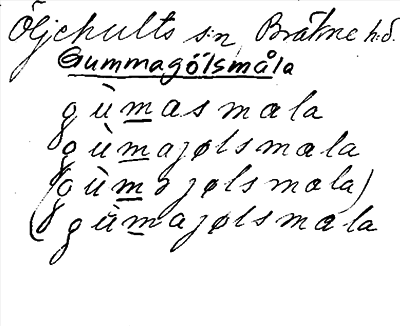 Öljehults s:n, Bräkne h.d.
Gummagölsmåla
gùmasmala
gùmajølsmala
(gùmajølsmala)
(gùmajølsmala